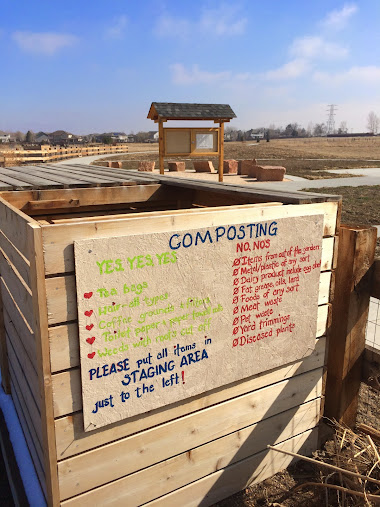 COMPOSTING
YES YES YES
Tea bags
Hair all types
Coffee grounds + filters
Toilet paper + paper towel
Weeds with roots cut off
PLEASE put all items in
STAGING AREA
just to the left!
NO, NO'S
Items from out of the garden
Metal/plastic of any sort
Dairy product include egg shell
Fat grease, oils, lard
Foods of any sort
Meat waste
Pet waste
Yard trimmings
Diseased plants